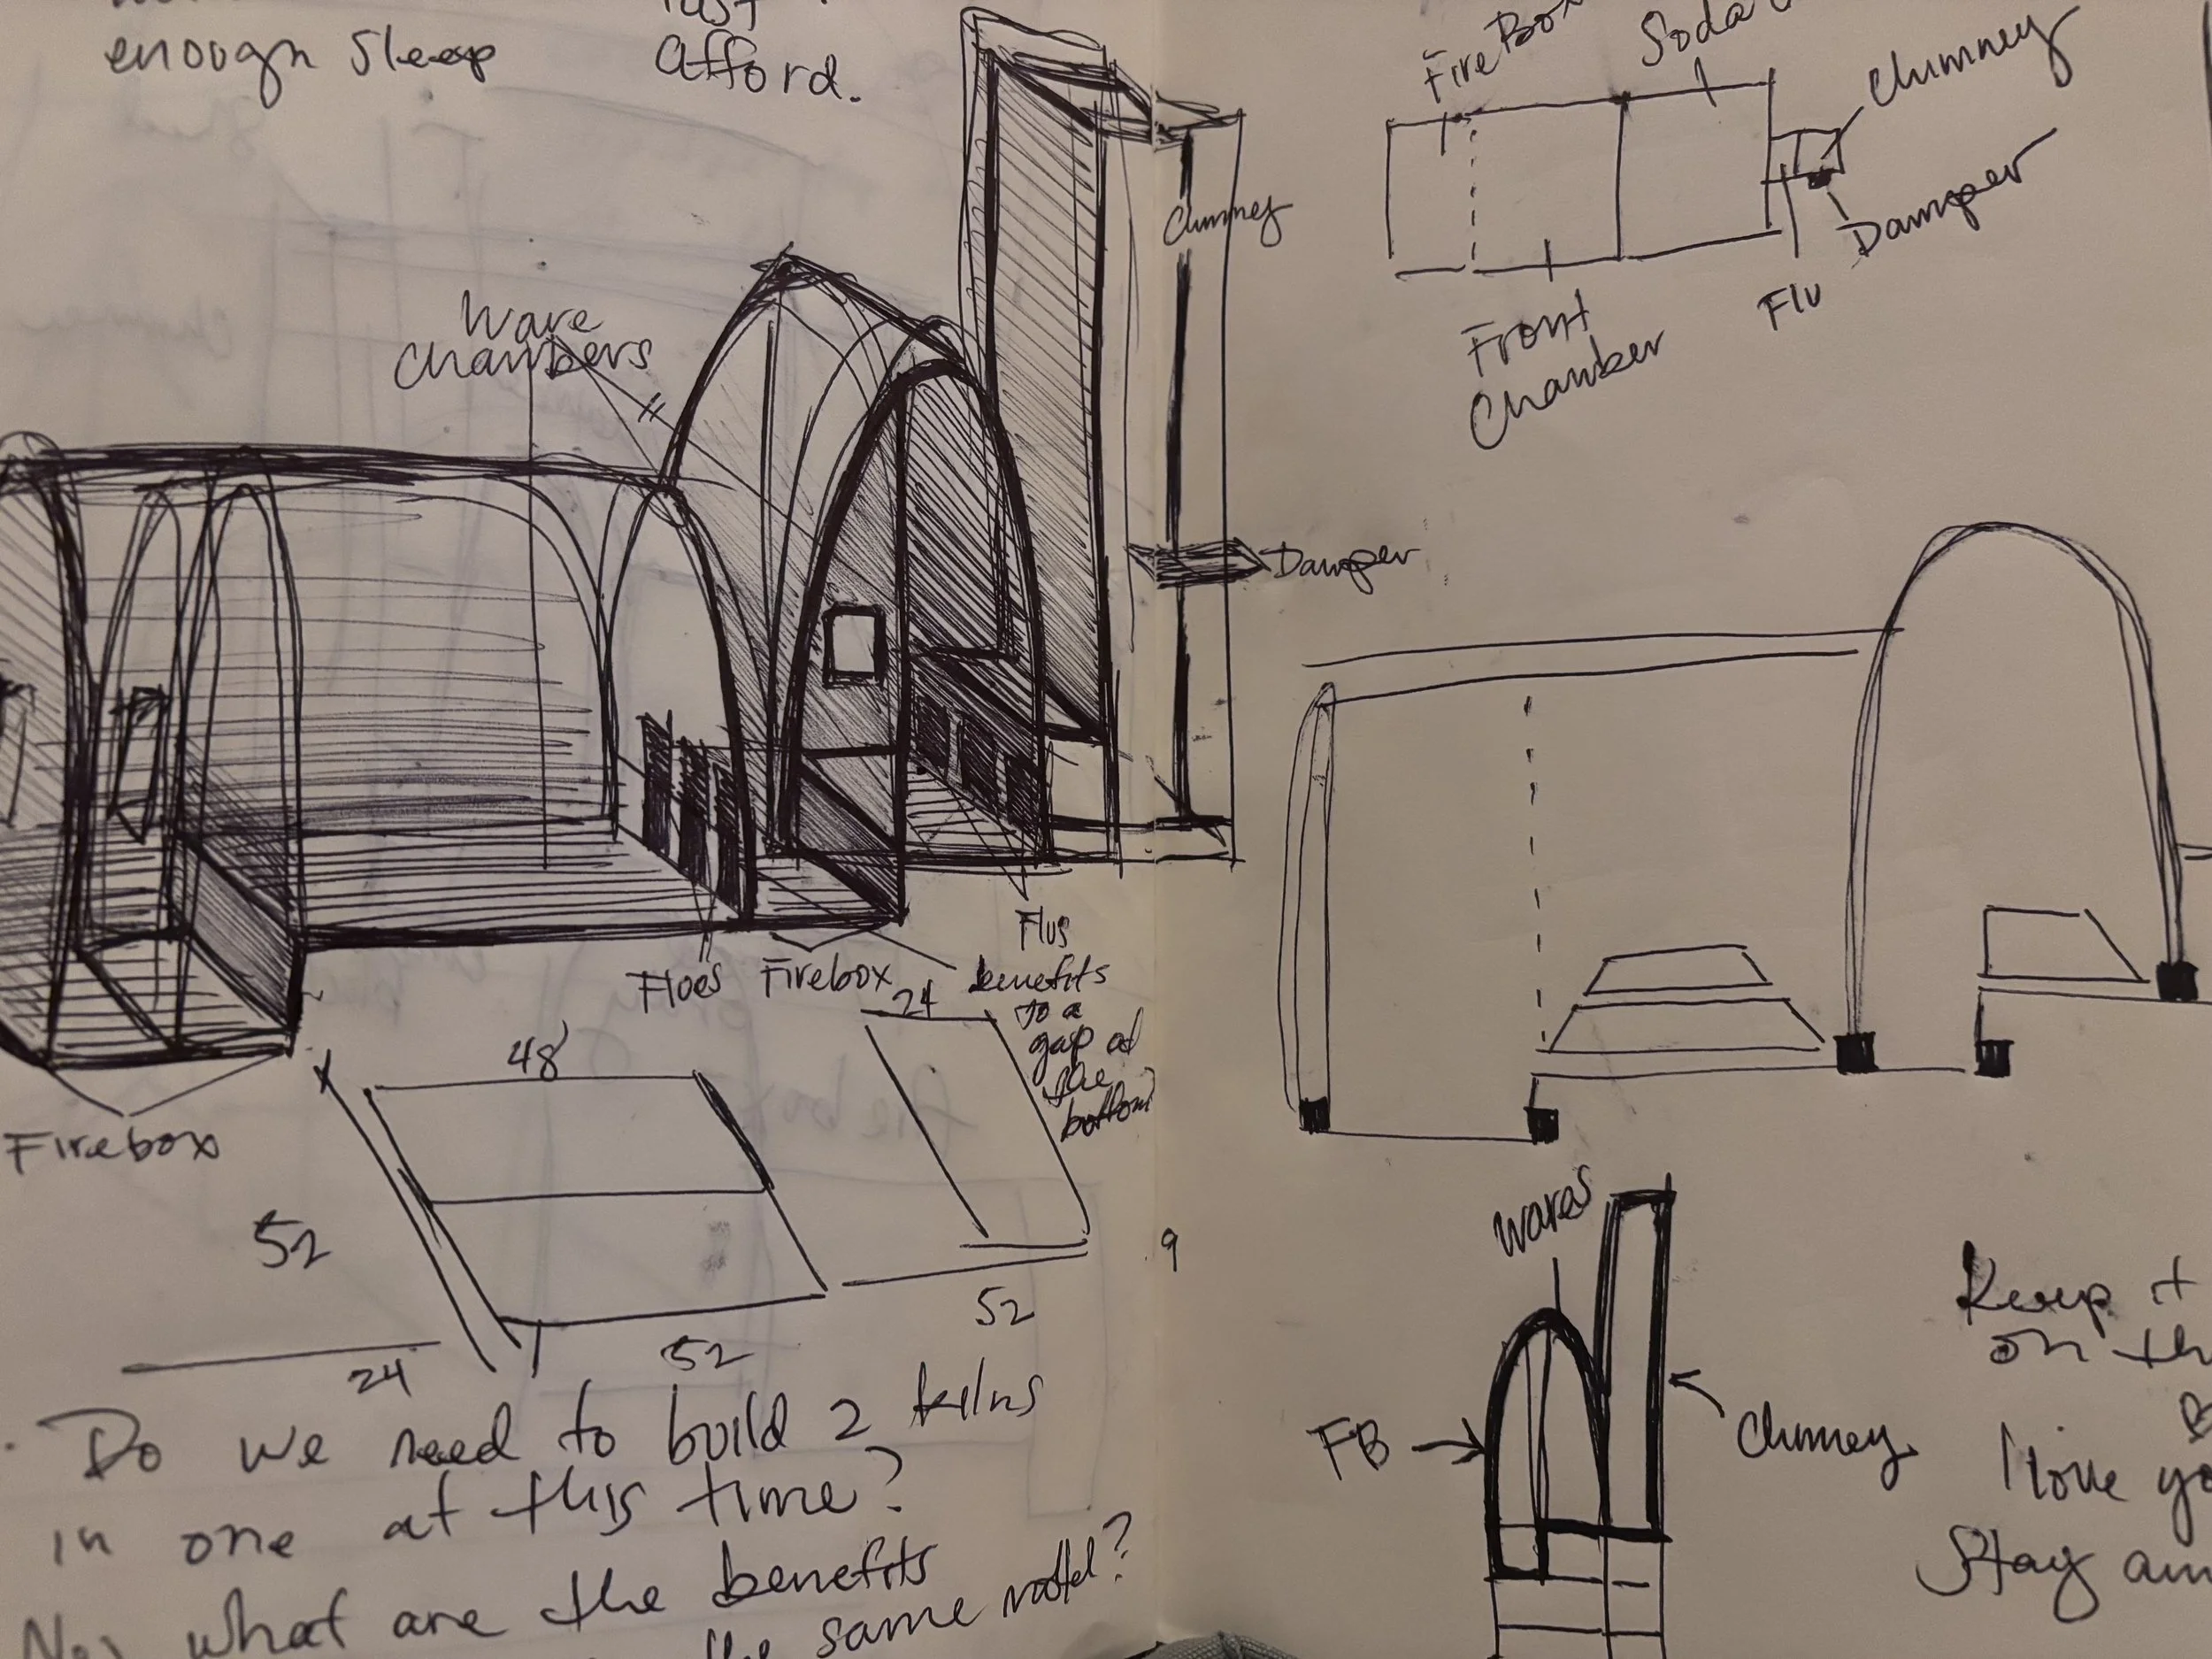 enough sleep
afford.
Fire Box
Soda
Chimney
Damper
Flu
Front
Chamber
Ware
Chambers
Chimney
Damper
Flues
Firebox
Flus
benefits
to a
gap at
the
bottom
Firebox
48
24
52
24
52
52
9
Do we need to build 2 kilns
in one at this time?
No, what are the benefits
the same
Wares
FB
Chimney
Keep it
on th
I love yo
Stay am